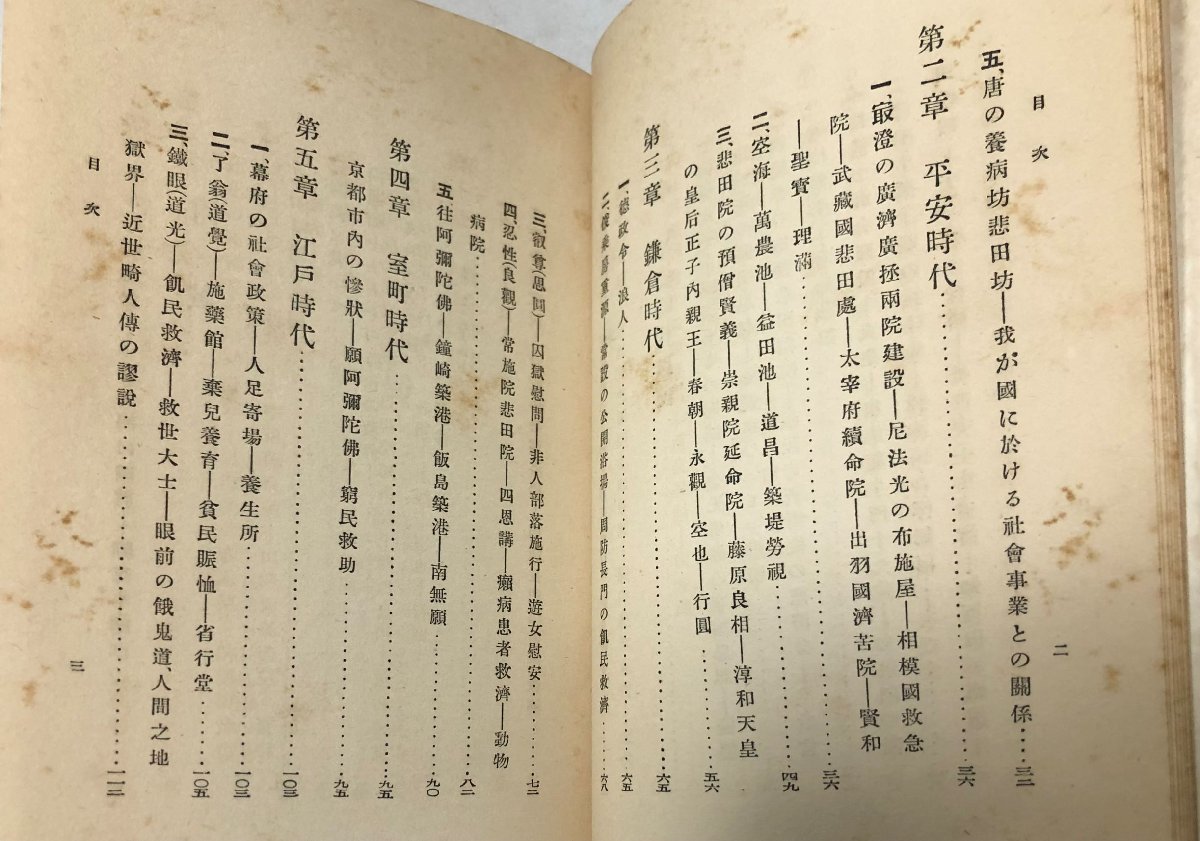 目次
五、唐の養病坊悲田坊――我が國に於ける社會事業との關係……三二
第二章 平安時代……三六
一、最澄の廣濟廣拯兩院建設――尼法光の布施屋――相模國救急
院――武藏國悲田處――太宰府續命院――出羽國濟苦院――賢和
――聖寳――理滿……三六
二、空海――萬農池――益田池――道昌――築堤勞視……四九
三、悲田院の預僧賢義――崇親院延命院――藤原良相――淳和天皇
の皇后正子內親王――春朝――永觀――空也――行圓……五六
第三章 鎌倉時代……六五
一、德政令――浪人……六五
二、俊乘房重源――常設の公開浴場――周防長門の飢民救濟……六八
二
三、叡尊(思圓)――囚獄慰問――非人部落施行――遊女慰安……七二
四、忍性(良觀)――常施院悲田院――四恩講――癩病患者救濟――動物
病院……八二
五、往阿彌陀佛――鐘崎築港――飯島築港――南無願……九〇
第四章 室町時代……九五
京都市內の慘狀――願阿彌陀佛――窮民救助……九五
第五章 江戶時代……一〇三
一、幕府の社會政策――人足寄場――養生所……一〇三
二、了翁(道覺)――施藥館――棄兒養育――貧民賑恤――省行堂……一〇五
三、鐵眼(道光)――飢民救濟――救世大士――眼前の餓鬼道、人間之地
獄界――近世畸人傳の謬說……一一二
目次
三